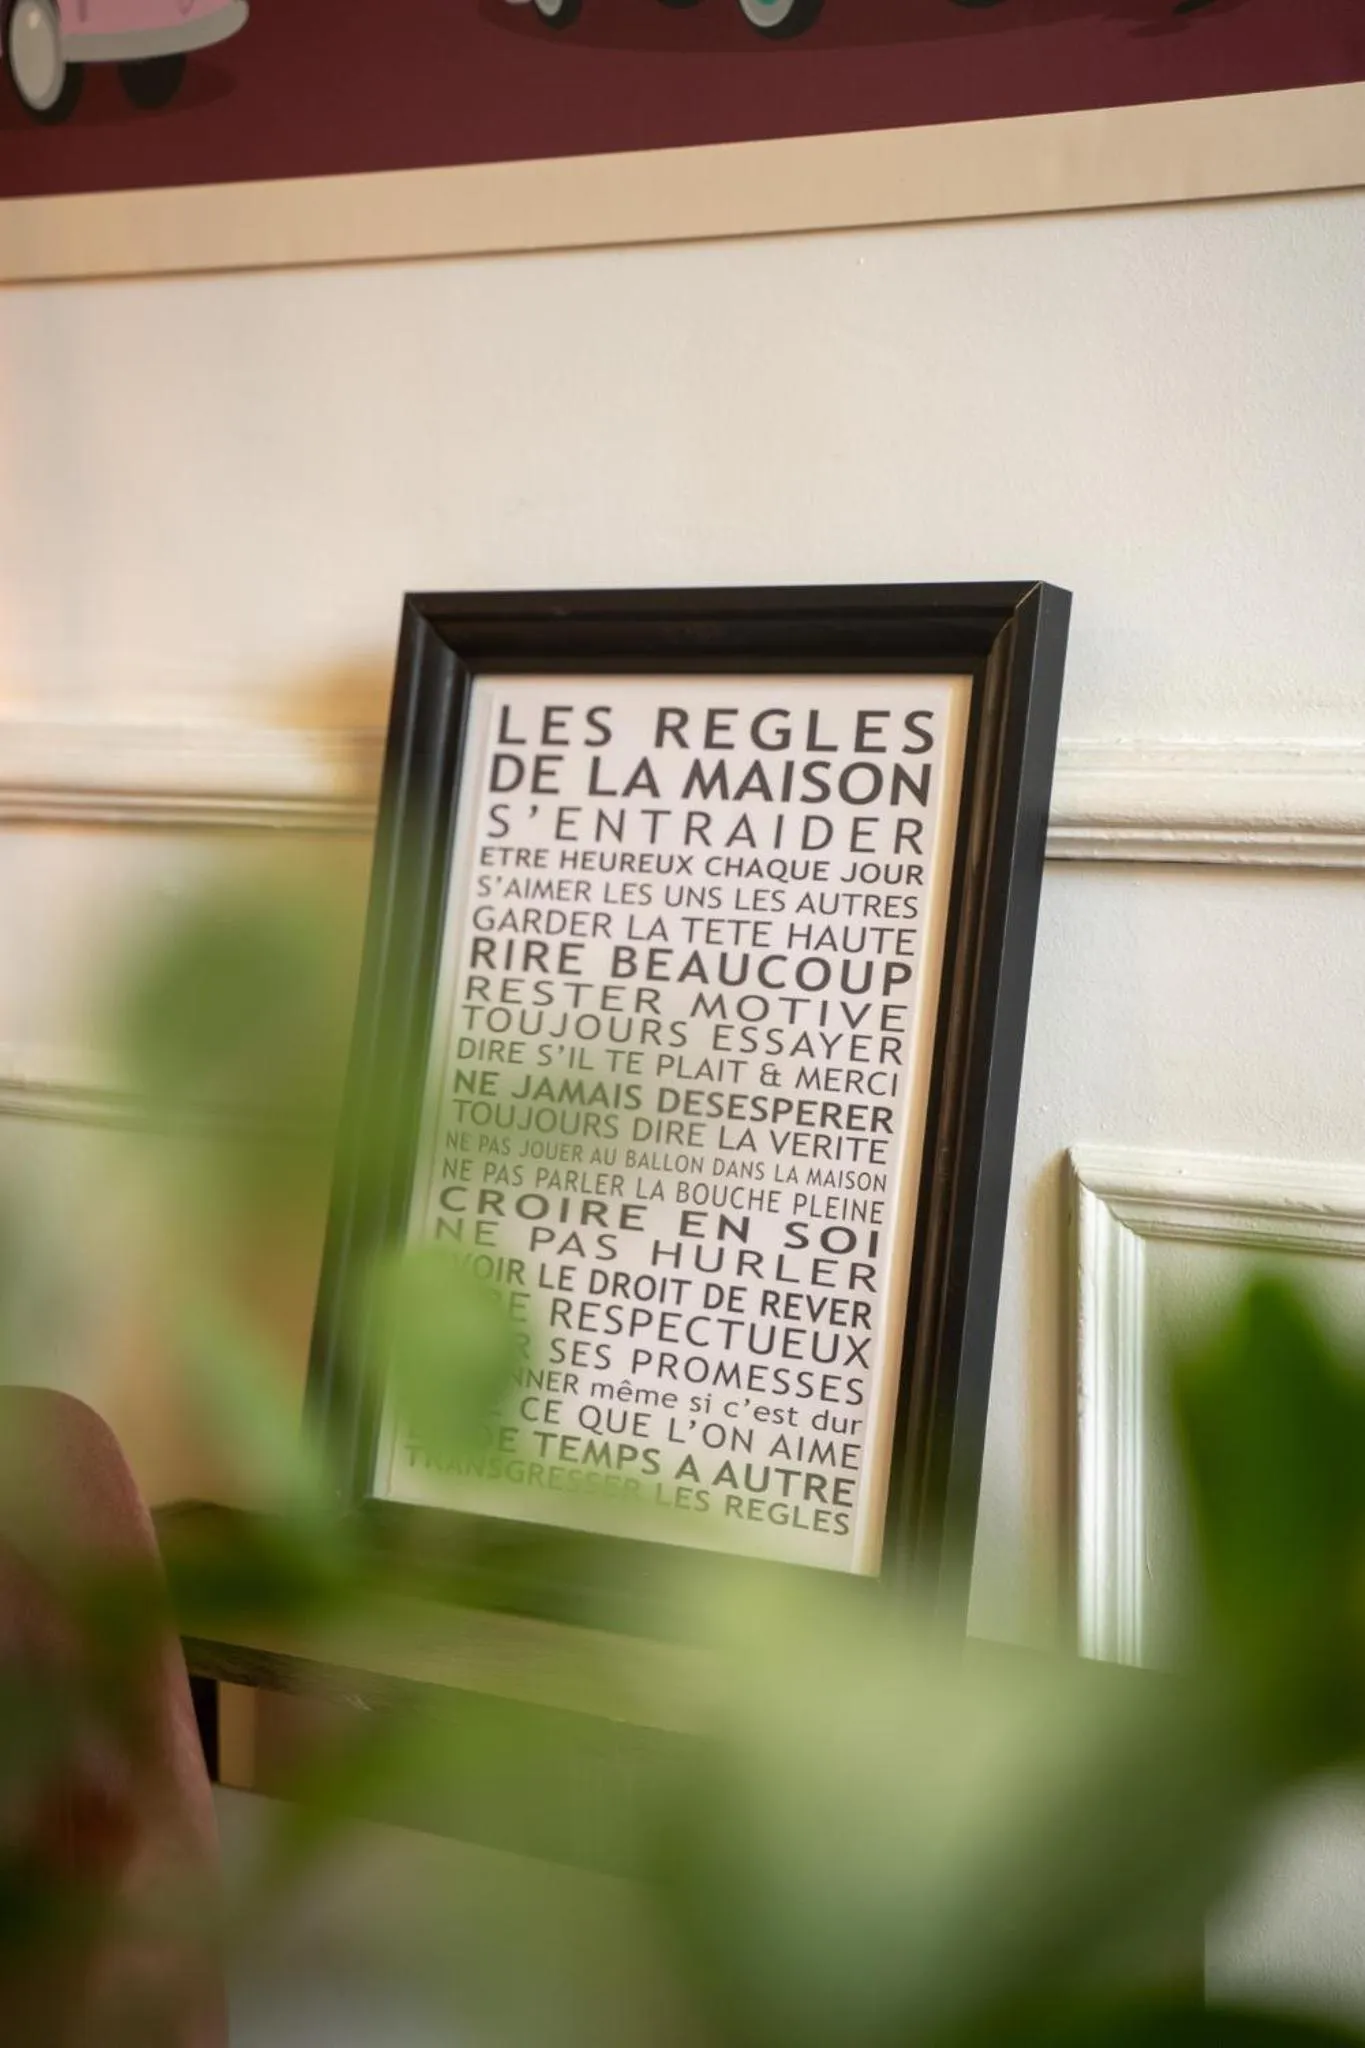 LES REGLES
DE LA MAISON
S'ENTRAIDER
ETRE HEUREUX CHAQUE JOUR
S'AIMER LES UNS LES AUTRES
GARDER LA TETE HAUTE
RIRE BEAUCOUP
RESTER MOTIVE
TOUJOURS ESSAYER
DIRE S'IL TE PLAIT & MERCI
NE JAMAIS DESESPERER
TOUJOURS DIRE LA VERITE
NE PAS JOUER AU BALLON DANS LA MAISON
NE PAS PARLER LA BOUCHE PLEINE
CROIRE EN SOI
NE PAS HURLER
LE DROIT DE REVER
RESPECTUEUX
SES PROMESSES
même si c'est dur
CE QUE L'ON AIME
DE TEMPS A AUTRE
TRANSGRESSER LES REGLES